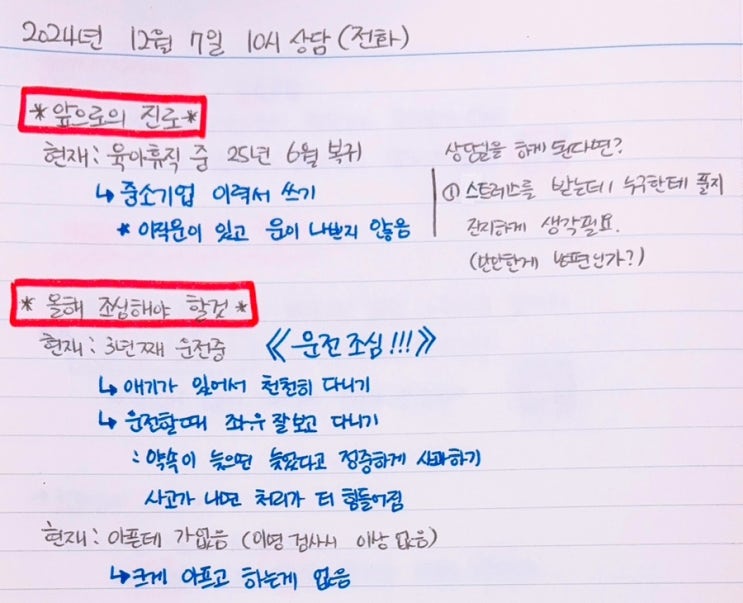 2024년 12월 7일 10시 상담 (전화)
* 앞으로의 진로 *
현재 : 육아휴직 중 25년 6월 복귀
↳ 중소기업 이력서 쓰기
* 이직운이 있고 운이 나쁘지 않음
상담을 하게 된다면?
① 스트레스를 받는데 누구한테 풀지
진지하게 생각필요.
(만만한게 남편인가?)
* 올해 조심해야 할것 *
현재 : 3년째 운전중 《운전조심!!!》
↳ 애기가 있어서 천천히 다니기
↳ 운전할때 좌우 잘보고 다니기
: 약속이 늦으면 늦었다고 정중하게 사과하기
사고가 나면 처리가 더 힘들어짐
현재 : 아픈데 가없음 (이명 검사시 이상 없음)
↳ 크게 아프고 하는게 없음